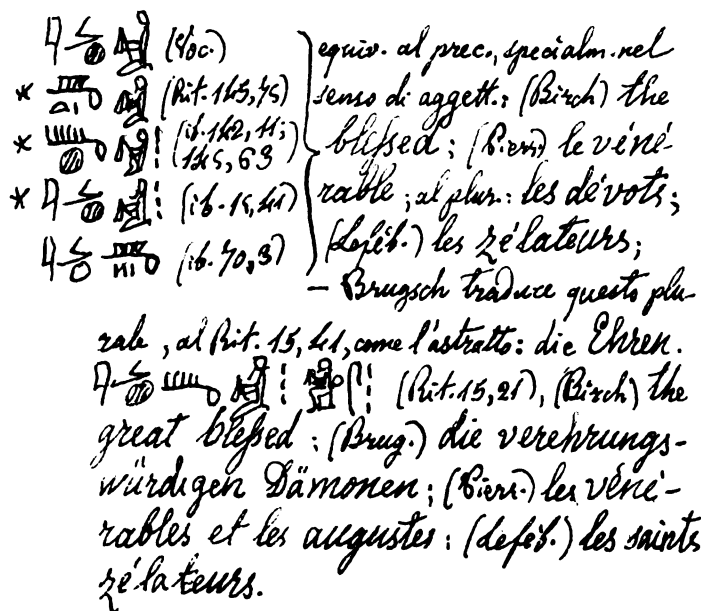 (Voc.)
* (Rit. 145, 75)
* (ib. 142, 11;
145, 63)
* (ib. 15, 41)
(ib. 70, 3)
equiv. al prec., specialm. nel
senso di aggett.: (Birch) the
blessed; (Pierr.) le véné-
rable; al plur.: les dévots;
(Leféb.) les zélateurs;
— Brugsch traduce questo plu-
rale, al Rit. 15, 41, come l'astratto: die Ehren.
(Rit. 15, 21), (Birch) the
great blessed: (Brug.) die verehrungs-
würdigen Dämonen; (Pierr.) les véné-
rables et les augustes: (Leféb.) les saints
zélateurs.